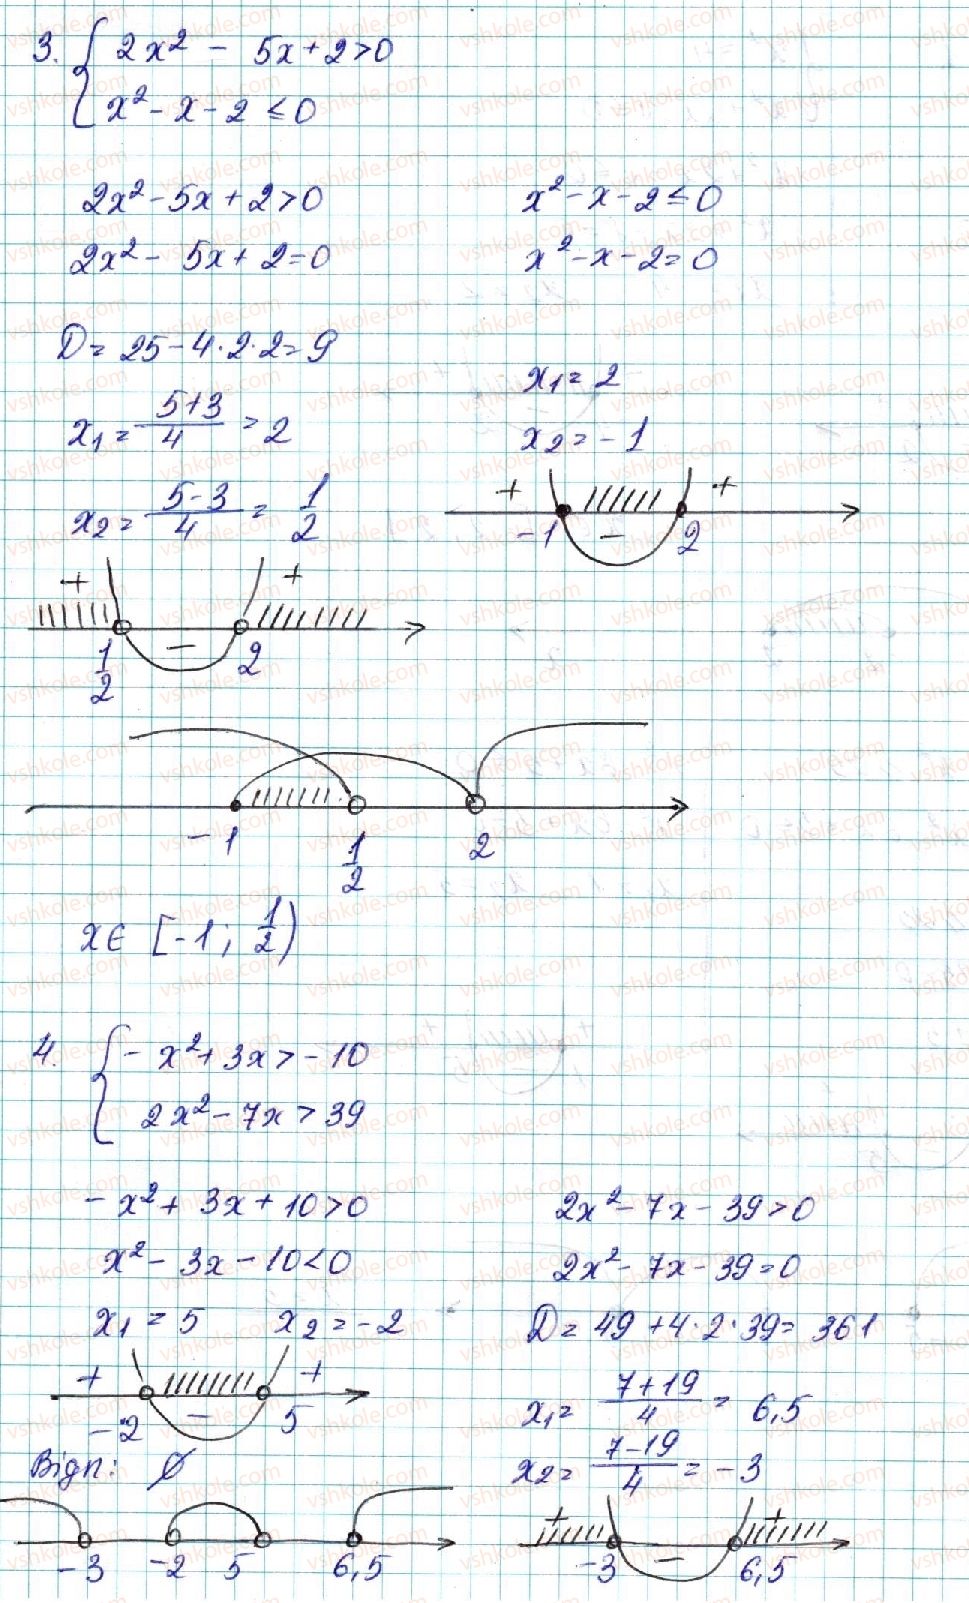 3. { 2x² - 5x + 2 > 0
x² - x - 2 ≤ 0
2x² - 5x + 2 > 0
2x² - 5x + 2 = 0
D = 25 - 4·2·2 = 9
x₁ = (5+3)/4 = 2
x₂ = (5-3)/4 = 1/2
+ - +
1/2 2
x² - x - 2 ≤ 0
x² - x - 2 = 0
x₁ = 2
x₂ = -1
+ - +
-1 2
-1 1/2 2
x ∈ [-1; 1/2)
4. { -x² + 3x > -10
2x² - 7x > 39
-x² + 3x + 10 > 0
x² - 3x - 10 < 0
x₁ = 5 x₂ = -2
+ - +
-2 5
Відп: ∅
-3 -2 5 6,5
2x² - 7x - 39 > 0
2x² - 7x - 39 = 0
D = 49 + 4·2·39 = 361
x₁ = (7+19)/4 = 6,5
x₂ = (7-19)/4 = -3
+ - +
-3 6,5
vshkole.com